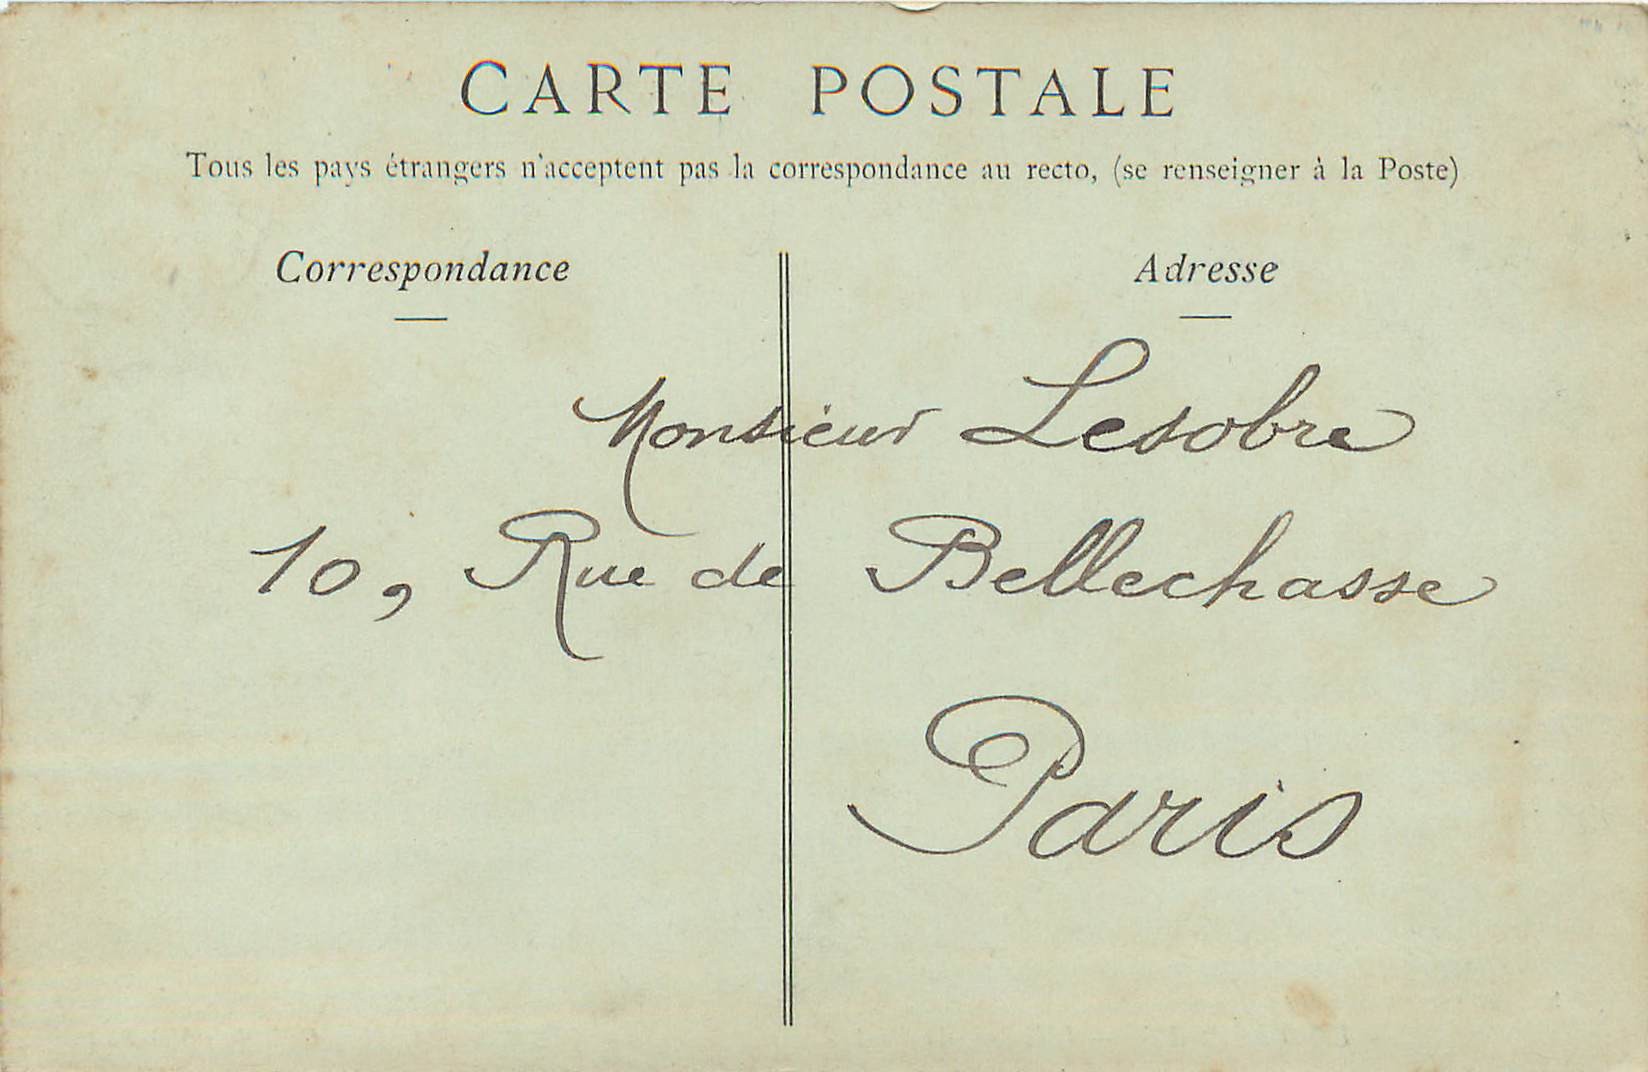 CARTE POSTALE
Tous les pays étrangers n'acceptent pas la correspondance au recto, (se renseigner à la Poste)
Correspondance
Adresse
Monsieur Lesobre
10, Rue de Bellechasse
Paris